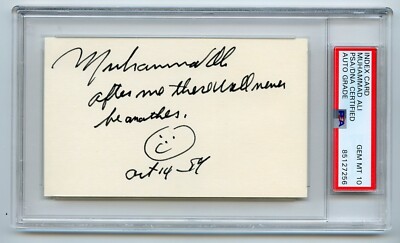 Muhammad Ali
after me there will never
be another.
Oct 14 - 84
INDEX CARD
MUHAMMAD ALI
PSA/DNA CERTIFIED
AUTO GRADE
GEM MT 10
85127256
PSA